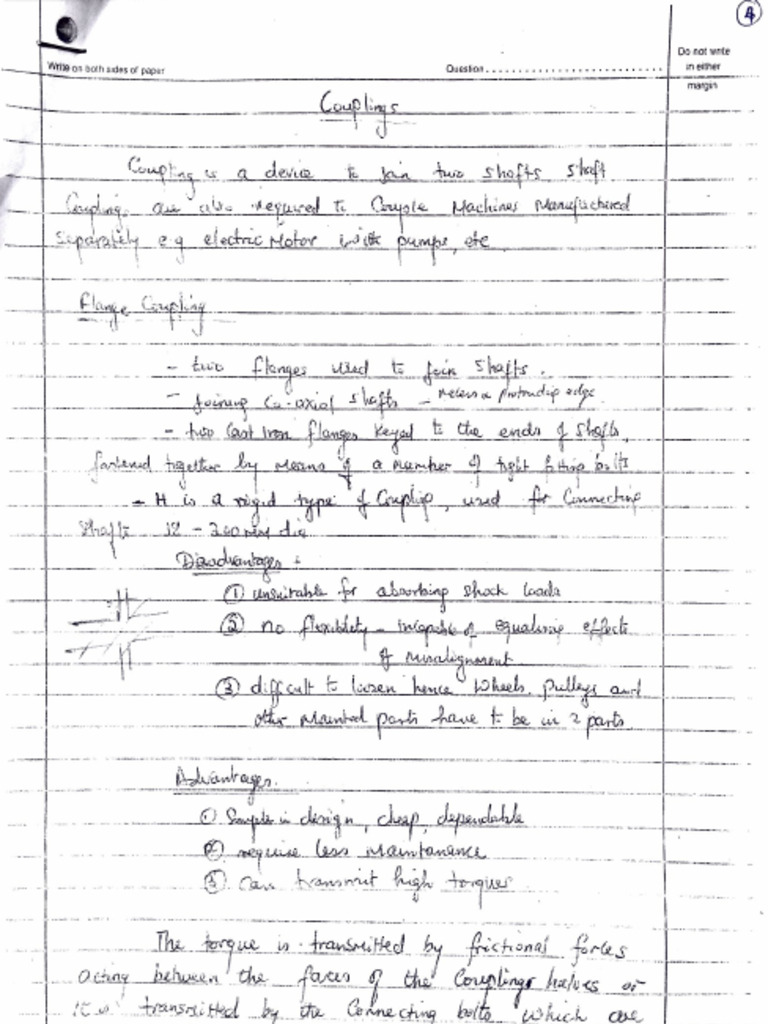 4
Write on both sides of paper
Question
Do not write
in either
margin
Couplings
Coupling is a device to join two shafts shaft
Couplings are also required to Couple Machines Manufactured
Separately e.g electric Motor with pumps, etc
Flange Coupling
- two flanges used to join shafts.
- Joining Co-axial shafts - recess & protruding edge
- two Cast iron flanges keyed to the ends of shafts,
fastened together by means of a number of tight fitting bolts
- It is a rigid type of Coupling, used for Connecting
Shafts 12 - 200 mm dia
Disadvantages :
① unsuitable for absorbing shock loads
② no flexibility - incapable of equalising effects
of misalignment
③ difficult to loosen hence Wheels, pulleys and
other Mounted parts have to be in 2 parts
Advantages.
① Simple in design, cheap, dependable
② require less Maintanance
③ Can transmit high torques
The torque is transmitted by frictional forces
acting between the faces of the Couplings halves or
it is transmitted by the Connecting bolts which are